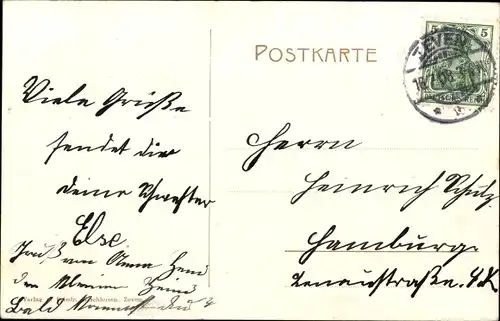 POSTKARTE
5 5
ZEVEN
Viele Grüße
sendet dir
deine Schwester
Else.
Gruß von Anna
den kleinen Heini
Bald kommst du
Herrn
Heinrich Schulz
Hamburg.
Lenaustraße.
Verlag
Zeven